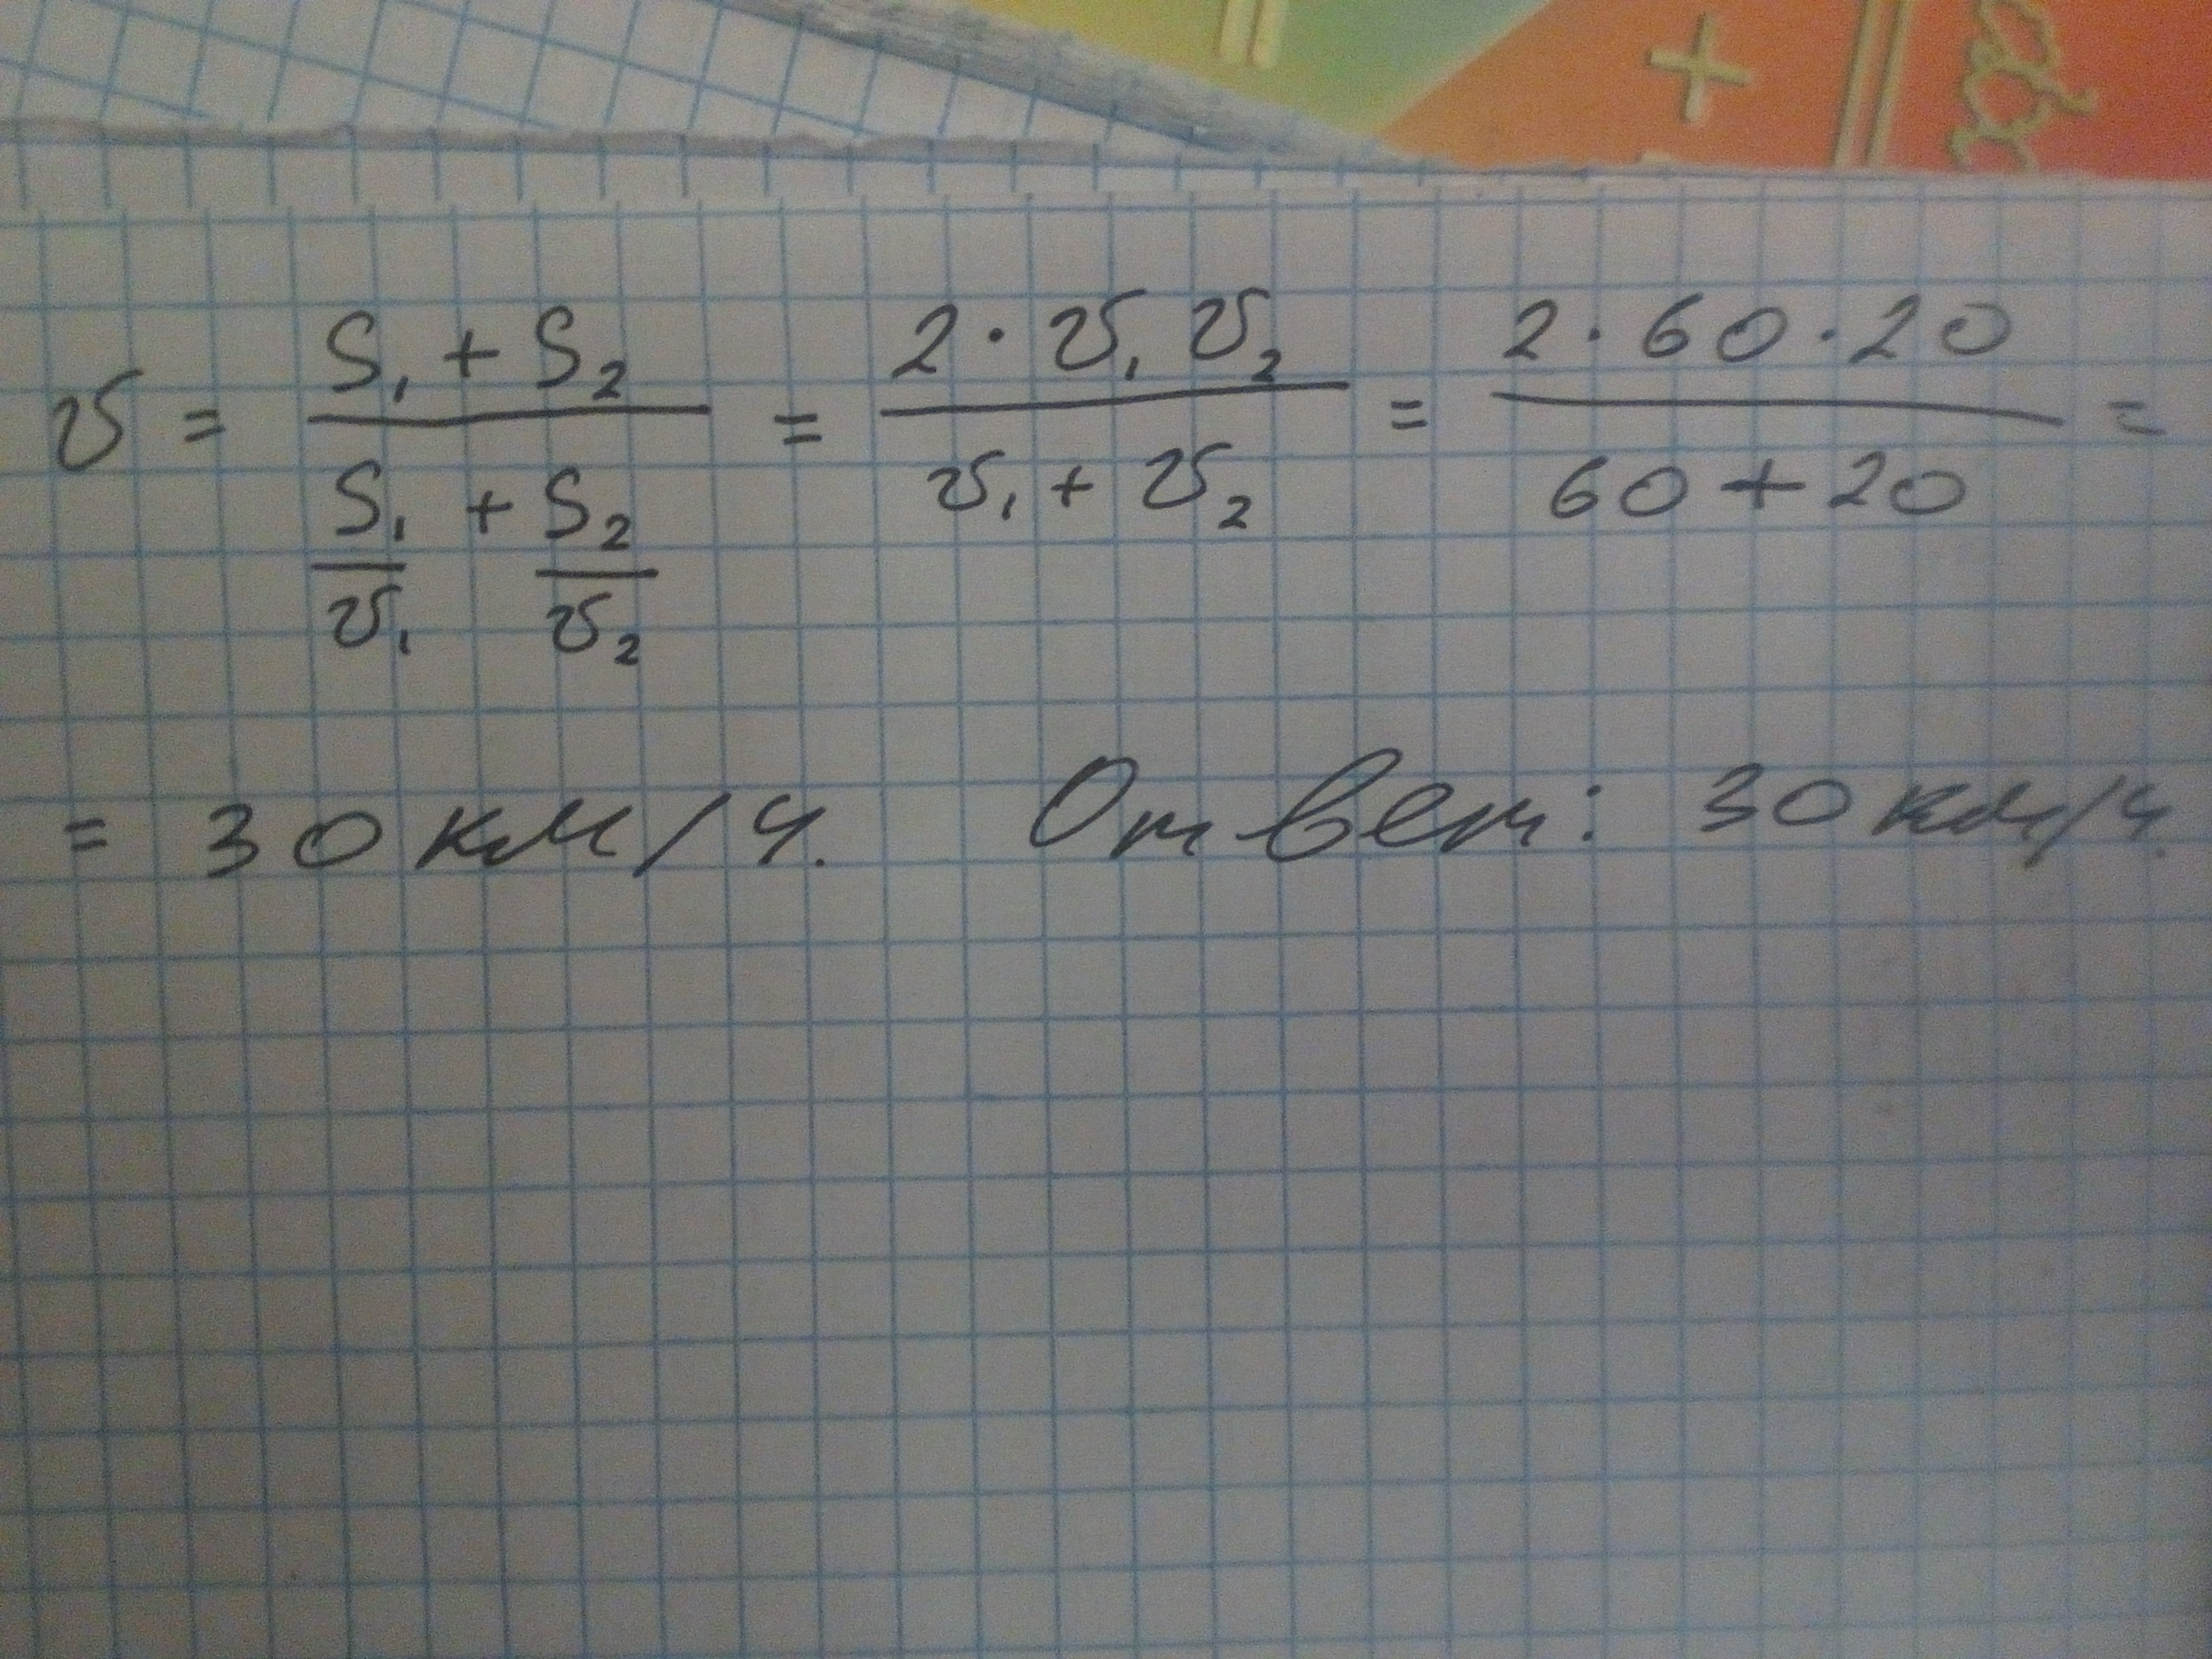 v = (S₁ + S₂) / (S₁/v₁ + S₂/v₂) = (2 · v₁ v₂) / (v₁ + v₂) = (2 · 60 · 20) / (60 + 20) =
= 30 км/ч. Ответ: 30 км/ч.